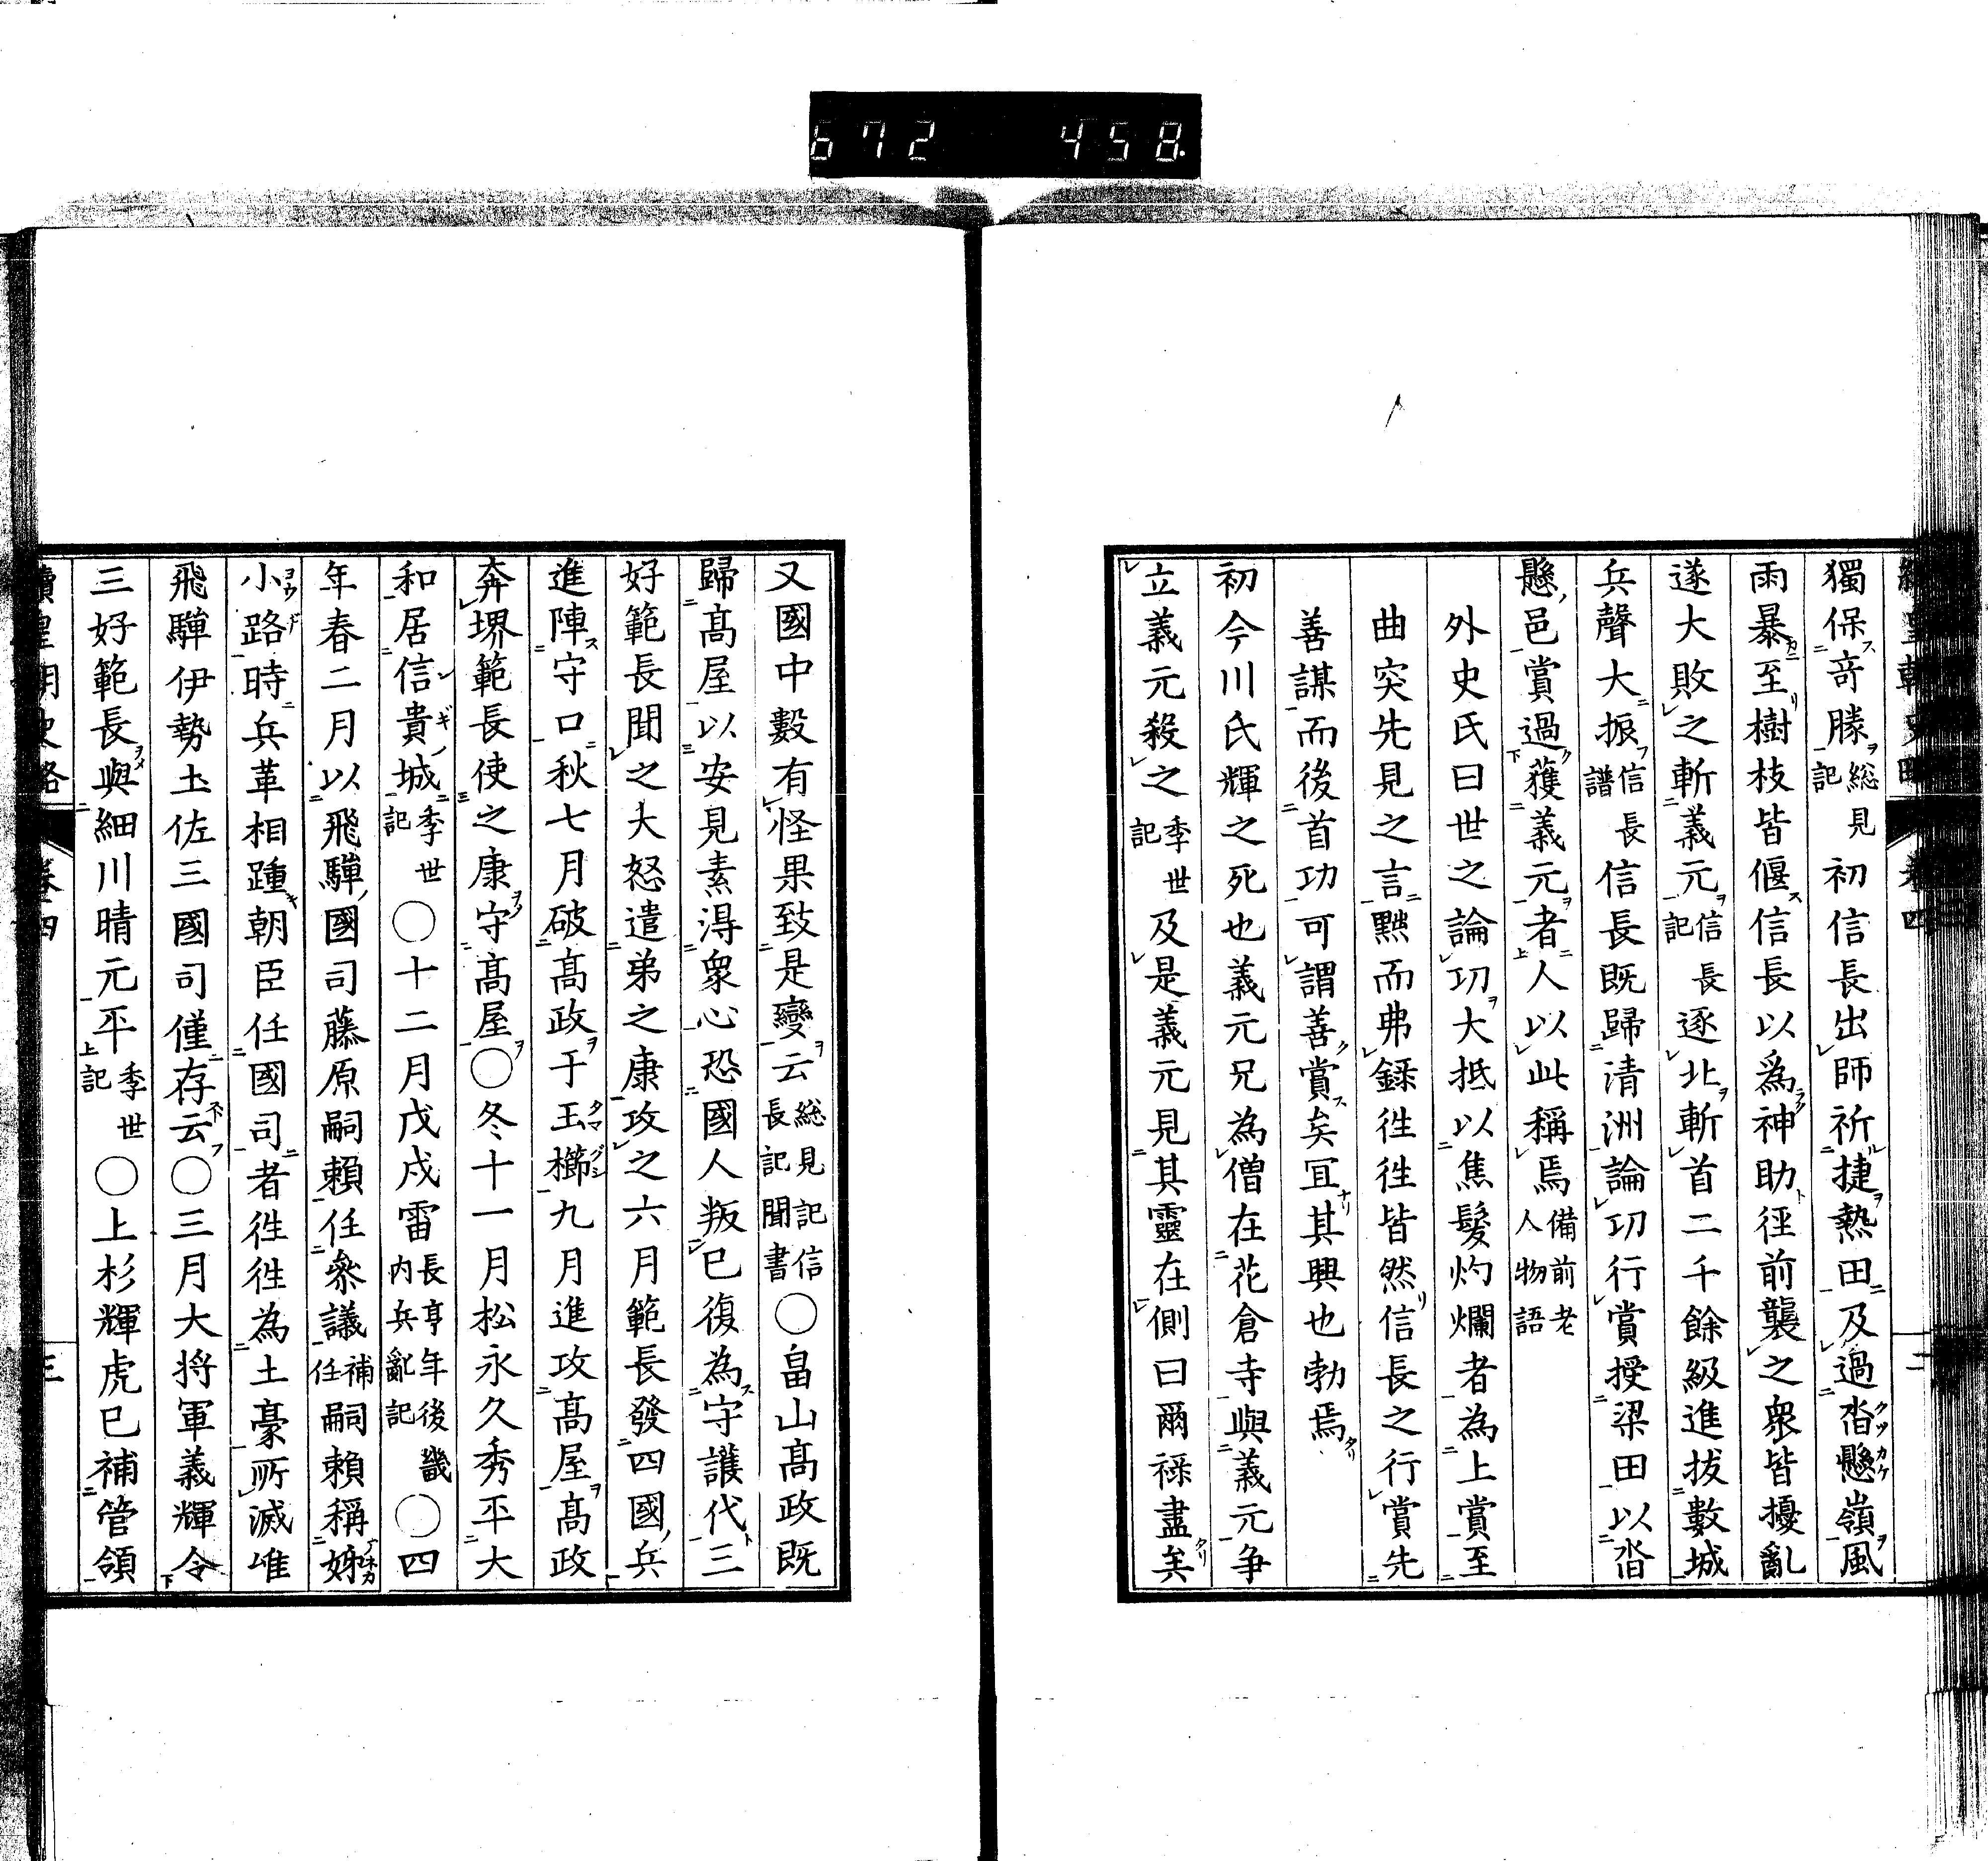 672 458
續皇朝史略 卷四 二
獨保奇勝總見記初信長出師祈捷熱田及過沓懸嶺風
雨暴至樹枝皆偃信長以爲神助徑前襲之衆皆擾亂
遂大敗之斬義元信長記逐北斬首二千餘級進拔數城
兵聲大振信長譜信長既歸清洲論功行賞授梁田以沓
懸邑賞過獲義元者人以此稱焉備前老人物語
外史氏曰世之論功大抵以焦髮灼爛者為上賞至
曲突先見之言黙而弗錄徃徃皆然信長之行賞先
善謀而後首功可謂善賞矣宜其興也勃焉
初今川氏輝之死也義元兄為僧在花倉寺與義元争
立義元殺之季世記及是義元見其靈在側曰爾祿盡矣
又國中數有怪果致是變云總見記信長記聞書〇畠山髙政既
歸髙屋以安見素淂衆心恐國人叛已復為守護代三
好範長聞之大怒遣弟之康攻之六月範長發四國兵
進陣守口秋七月破髙政于玉櫛九月進攻髙屋髙政
奔堺範長使之康守髙屋〇冬十一月松永久秀平大
和居信貴城季世記〇十二月戊戌雷長享年後畿内兵亂記〇四
年春二月以飛驒國司藤原嗣賴任參議補任嗣賴稱姉
小路時兵革相踵朝臣任國司者徃徃為土豪所滅唯
飛驒伊勢土佐三國司僅存云〇三月大将軍義輝令
三好範長與細川晴元平季世記〇上杉輝虎已補管領
續皇朝史略 卷四 三